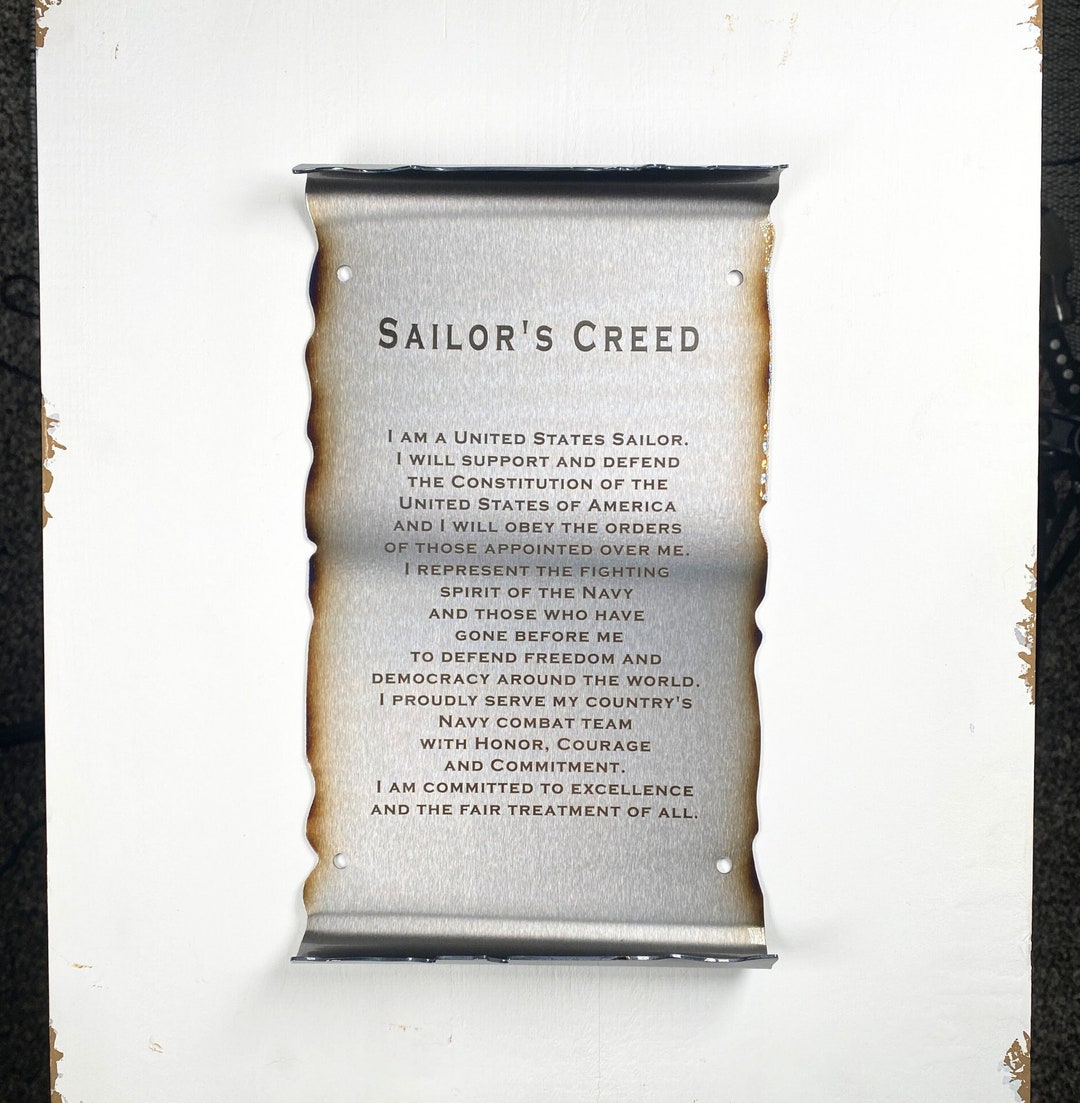 SAILOR'S CREED
I AM A UNITED STATES SAILOR.
I WILL SUPPORT AND DEFEND
THE CONSTITUTION OF THE
UNITED STATES OF AMERICA
AND I WILL OBEY THE ORDERS
OF THOSE APPOINTED OVER ME.
I REPRESENT THE FIGHTING
SPIRIT OF THE NAVY
AND THOSE WHO HAVE
GONE BEFORE ME
TO DEFEND FREEDOM AND
DEMOCRACY AROUND THE WORLD.
I PROUDLY SERVE MY COUNTRY'S
NAVY COMBAT TEAM
WITH HONOR, COURAGE
AND COMMITMENT.
I AM COMMITTED TO EXCELLENCE
AND THE FAIR TREATMENT OF ALL.